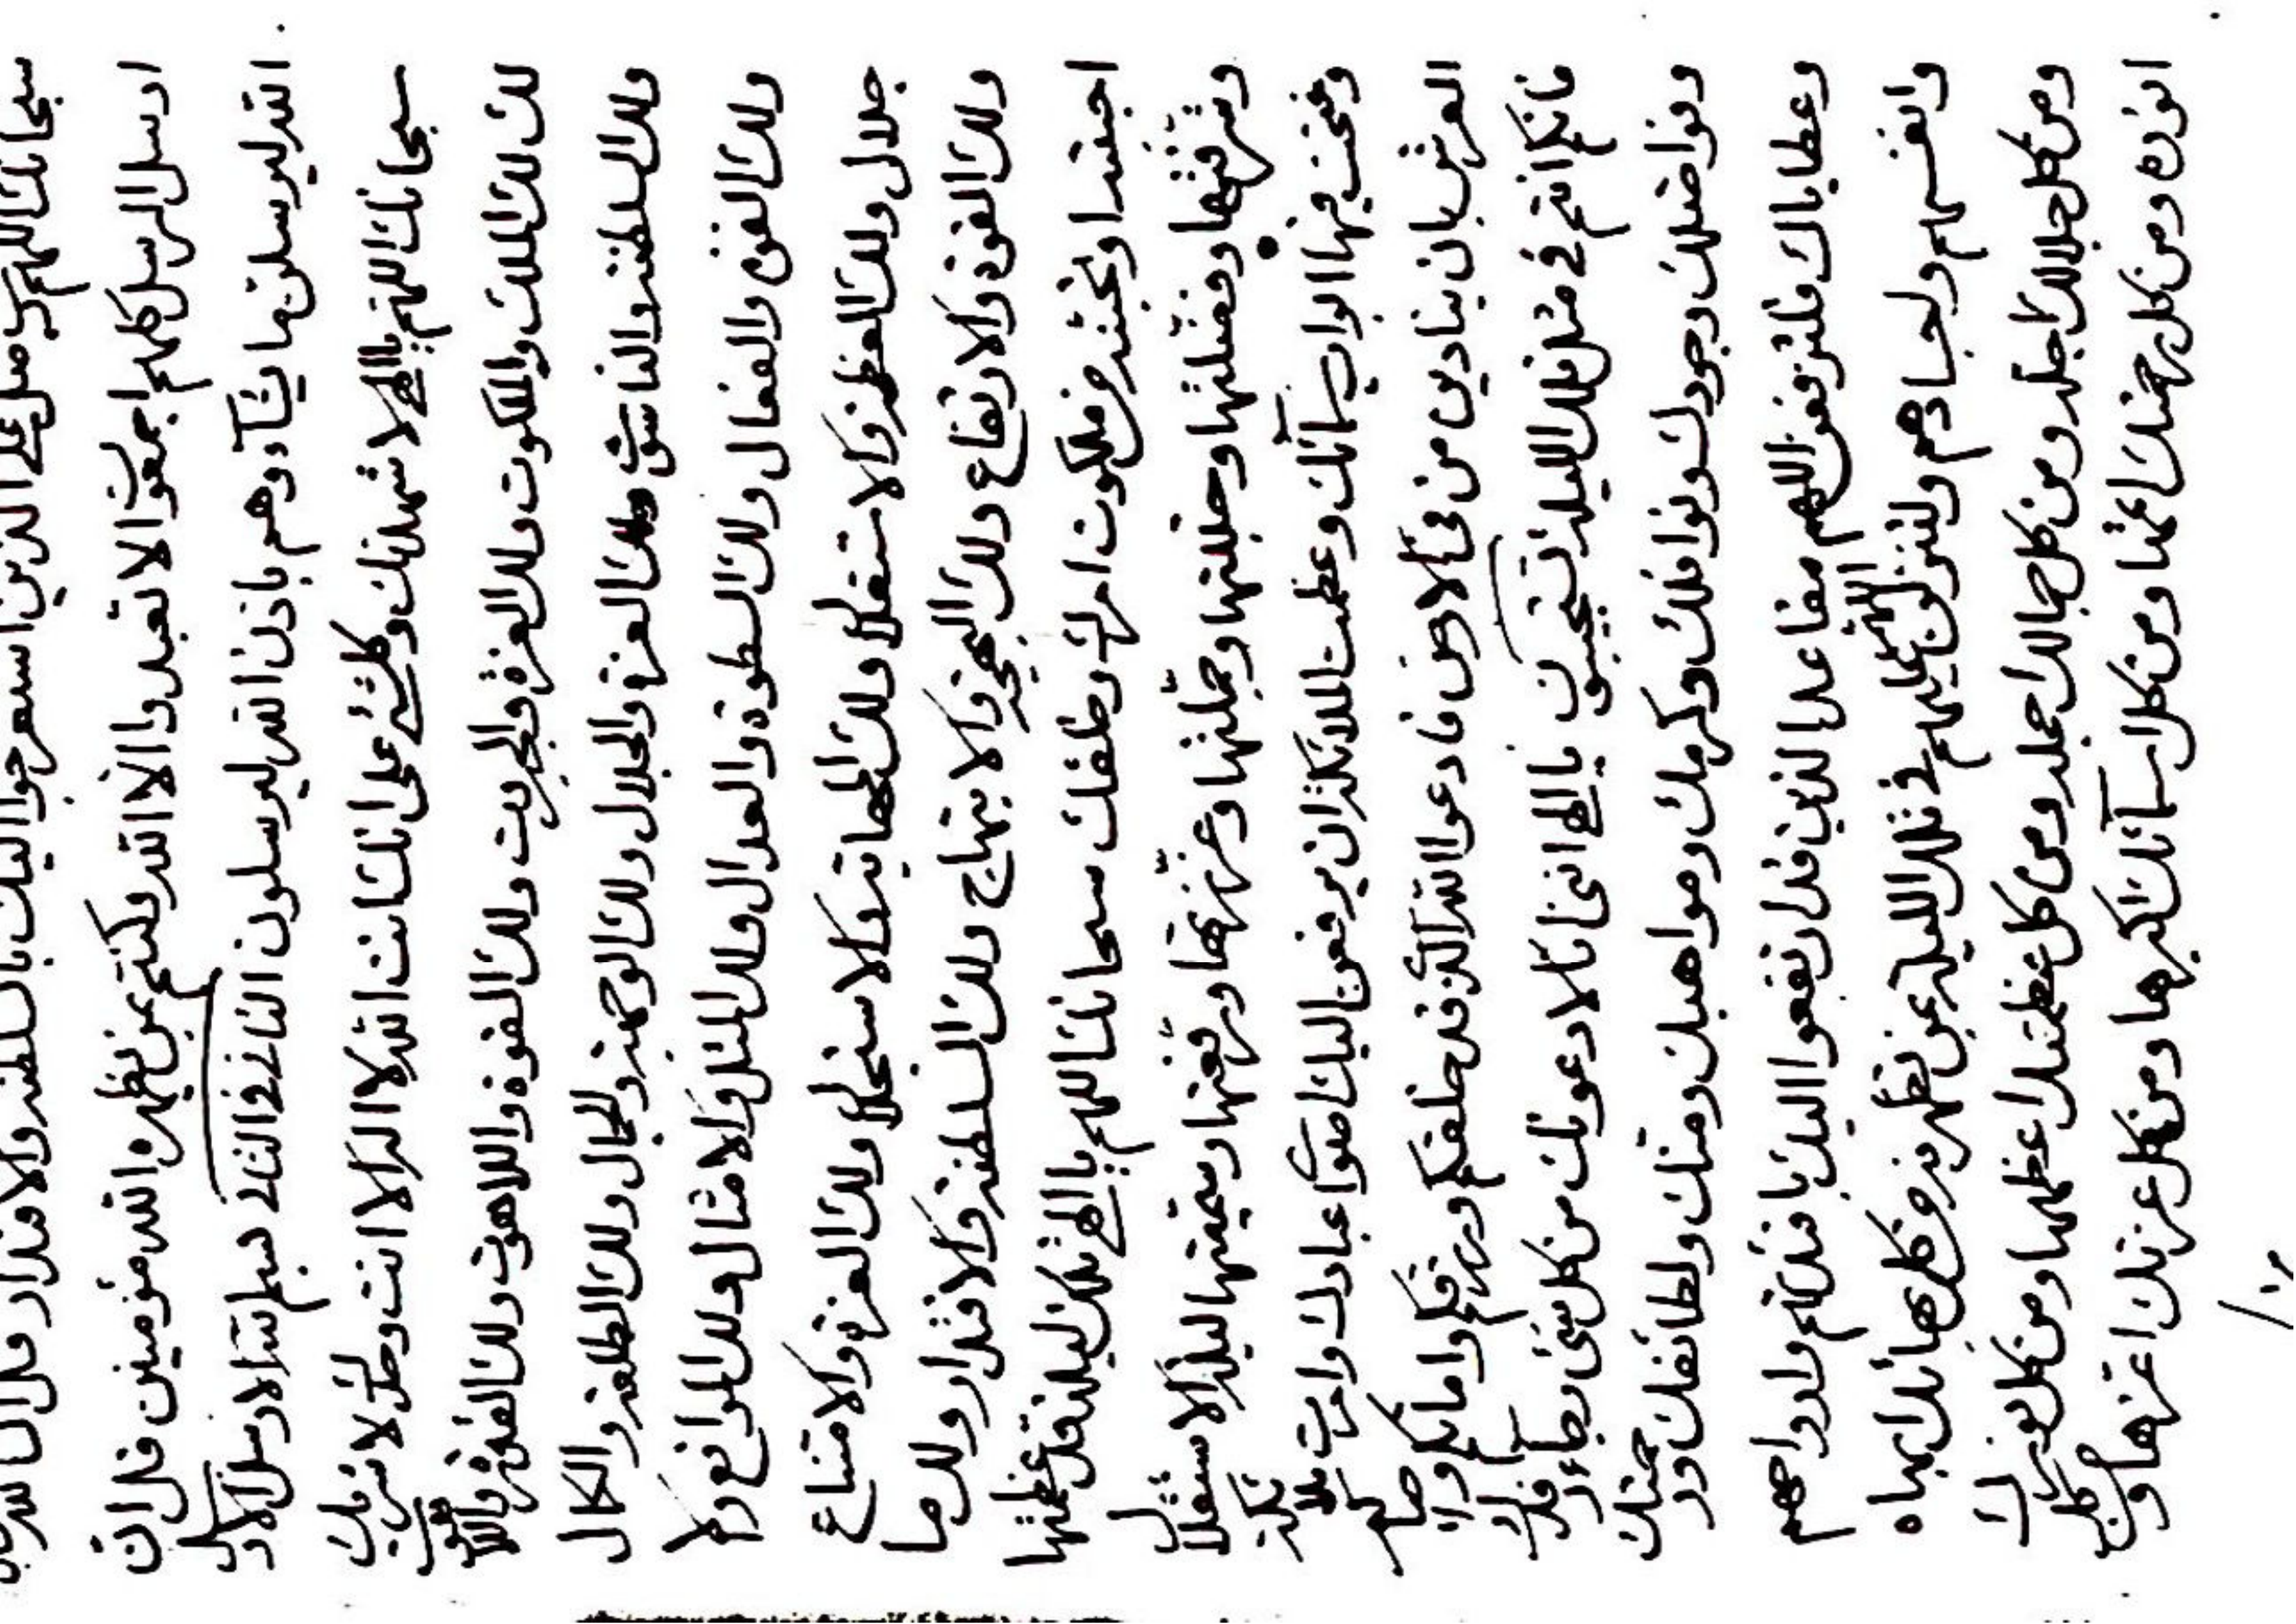 سبحانك اللهم رب صل على الذين استعرجوا اليك بالسلطنة والاقتدار قل ان الله
ارسل الرسل كلهم اجمعون الا تعبدوا الا الله وكنتم بمن يظهره الله مؤمنين قل ان
الله ليرسلن ما يشآء وهم باذن الله ليرسلون الثاني في الثاني بسم الله الارسل الارسل
سبحانك اللهم يا الهي لاشهدنك وكلشئ على انك انت الله لا اله الا انت وحدك لا شريك
لك لك الملك والملكوت ولك العزة والجبروت ولك القوة واللاهوت ولك القدرة
ولك السلطنة والناسوت ولك العزة والجلال ولك الوجهة والجمال ولك الطلعة والكمال
ولك القوة والفعال ولك السطوة والعدال ولك المثل والامثال ولك المواقع ولا
جلال ولك العظمة والاستقلال ولك المهابة والاستجلال ولك العزة والامتناع
ولك القوة والارتفاع ولك البهجة والابتهاج ولك السلطنة والاقتدار ولك ما
من ملكوت امرك وخلقك سبحانك اللهم يا الهي تلك ليلة قد عظمتها
وشرفتها وفضلتها وجللتها وجملتها وعززتها ورفعتها وسميتها ليلة الاستقلال
وفتحت فيها ابواب سمآئك وعظمت الملائكة ان يرفعن اليك اصوات عبادك وامرت ملائكة
العرش بان ينادين من في الارض فادعوا الله الذي قد خلقكم ورزقكم واماتكم
فانكم انتم في مثل تلك الليلة تستجيبون يا الهي انني انا لادعونك من كل شئ رجآء فضلك
وفواضلك وجودك ونوافلك وكرمك ومواهبك ومنك ولطائفك ورحمتك
وعطاياك فلترفعن اللهم مقاعد الذين قد ارتفعوا اليك بافئدتهم وارواحهم
وانفسهم واجسادهم ولتنزلن اللهم عليهم في تلك الليلة بمن تظهرنه من كل بهائك ابهاه
ومن كل جلالك اجله ومن كل جمالك اجمله ومن كل عظمتك اعظمها ومن كل نورك
انوره ومن كل رحمتك اعمها ومن كل اسمآئك اكبرها ومن كل عزتك اعزها